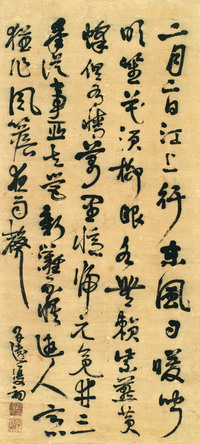 二月二日江上行東風日暖聞
吹笙花須柳眼各無賴紫蝶黃
蜂俱有情萬里憶歸元亮井三
年從事亞夫營新灘莫悟遊人意
猶作風簷夜雨聲